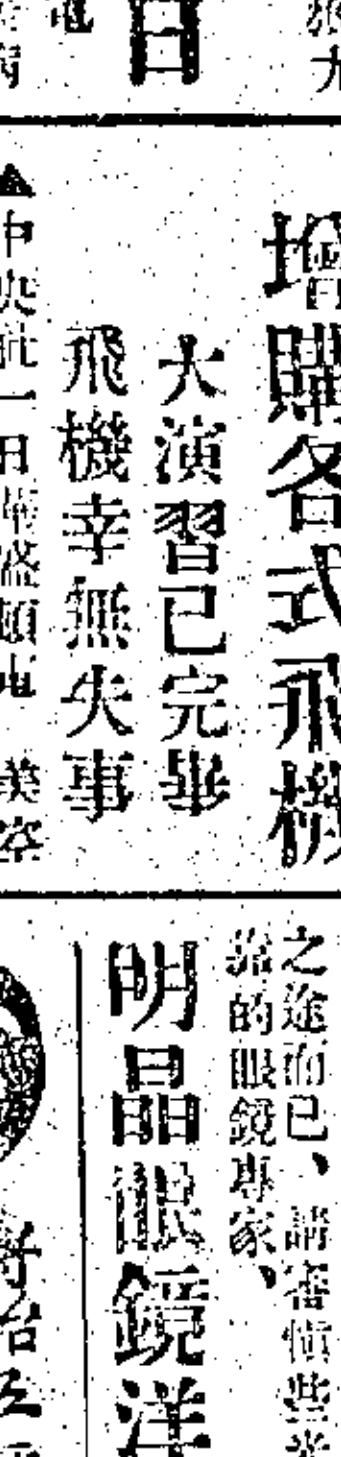 日
增購各式飛機
大演習已完畢
飛機幸無失事
▲中央航一日華盛頓電 美空
之途而已、請
的眼鏡專家、
明晶眼鏡洋